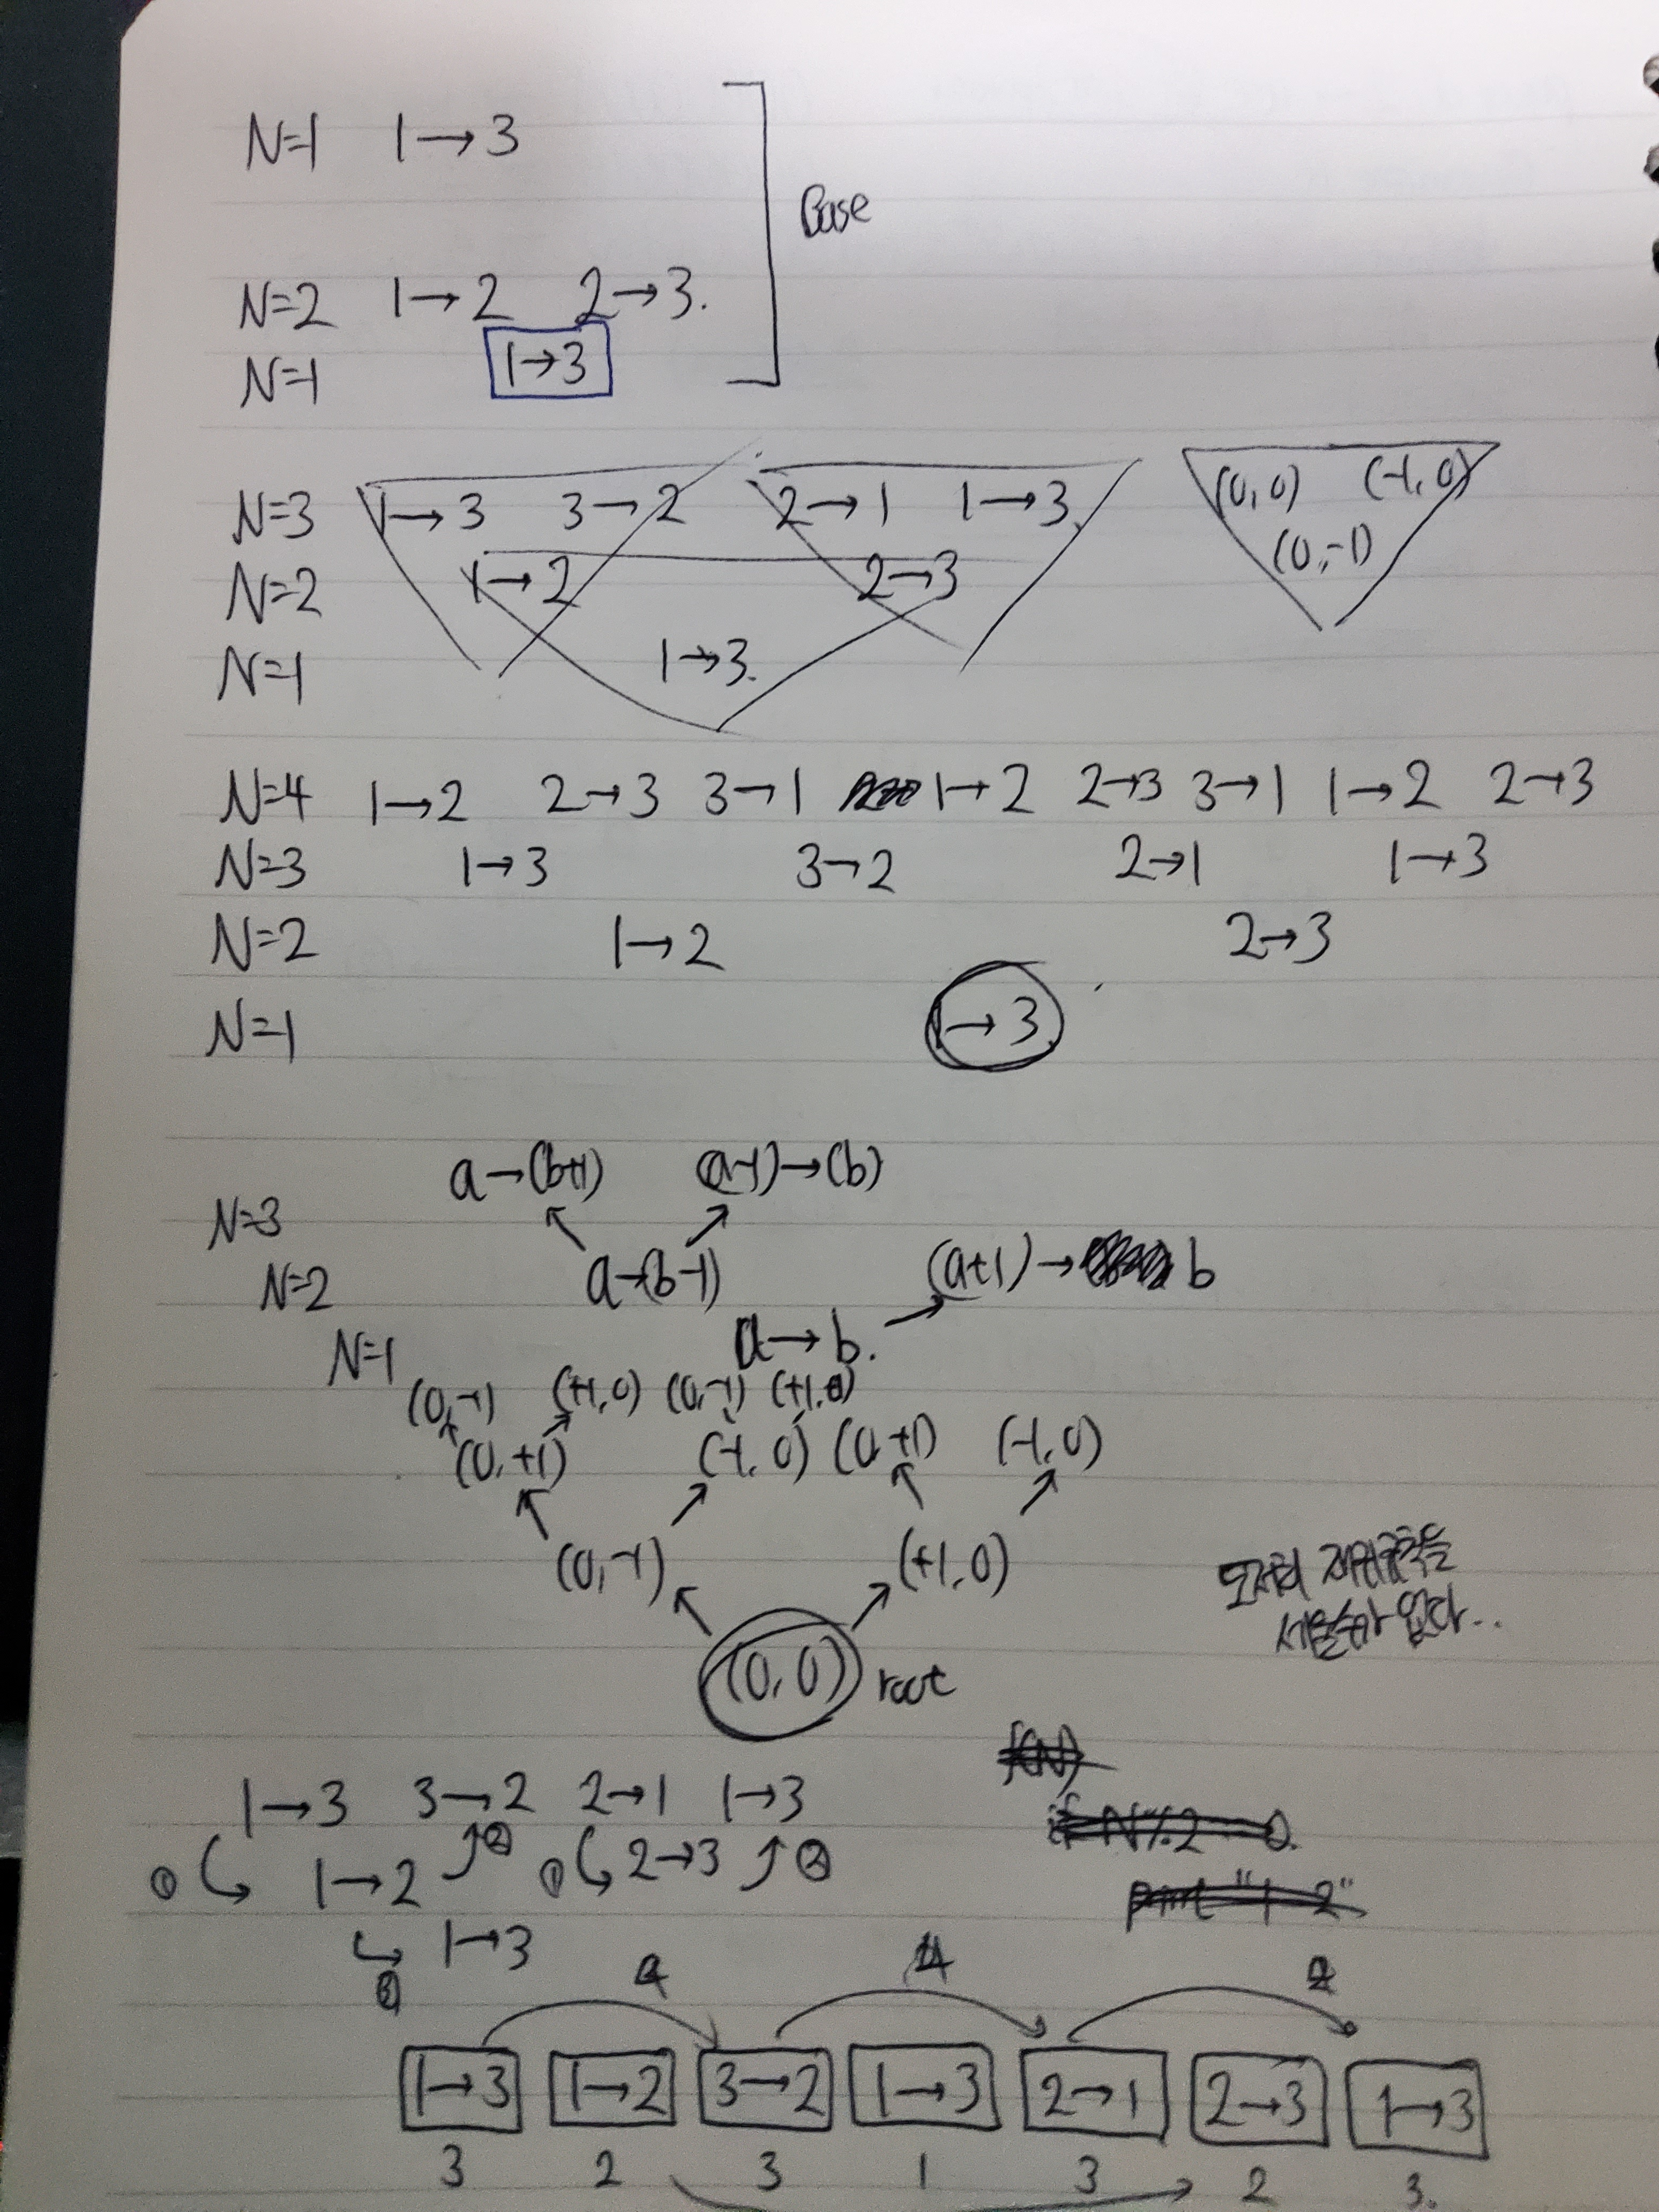 N=1 1→3
Base
N=2 1→2 2→3.
N=1 1→3
N=3 1→3 3→2 2→1 1→3 (0,0) (-1,0)
(0,-1)
N=2 1→2 2→3
N=1 1→3.
N=4 1→2 2→3 3→1 1→2 2→3 3→1 1→2 2→3
N=3 1→3 3→2 2→1 1→3
N=2 1→2 2→3
N=1 1→3
a→(b+1) (a-1)→(b)
N=3
N=2 a→(b-1) (a+1)→ b
N=1 a→b.
(0,-1) (+1,0) (0,-1) (+1,0)
(0,+1) (-1,0) (0,+1) (-1,0)
(0,-1) (+1,0)
도저히 재귀규칙을
세울수가 없다..
(0,0) root
f(N)
1→3 3→2 2→1 1→3
if N%2 = 0.
① 1→2 ② ① 2→3 ②
print "1 2"
1→3
1→3 1→2 3→2 1→3 2→1 2→3 1→3
3 2 3 1 3 2 3.